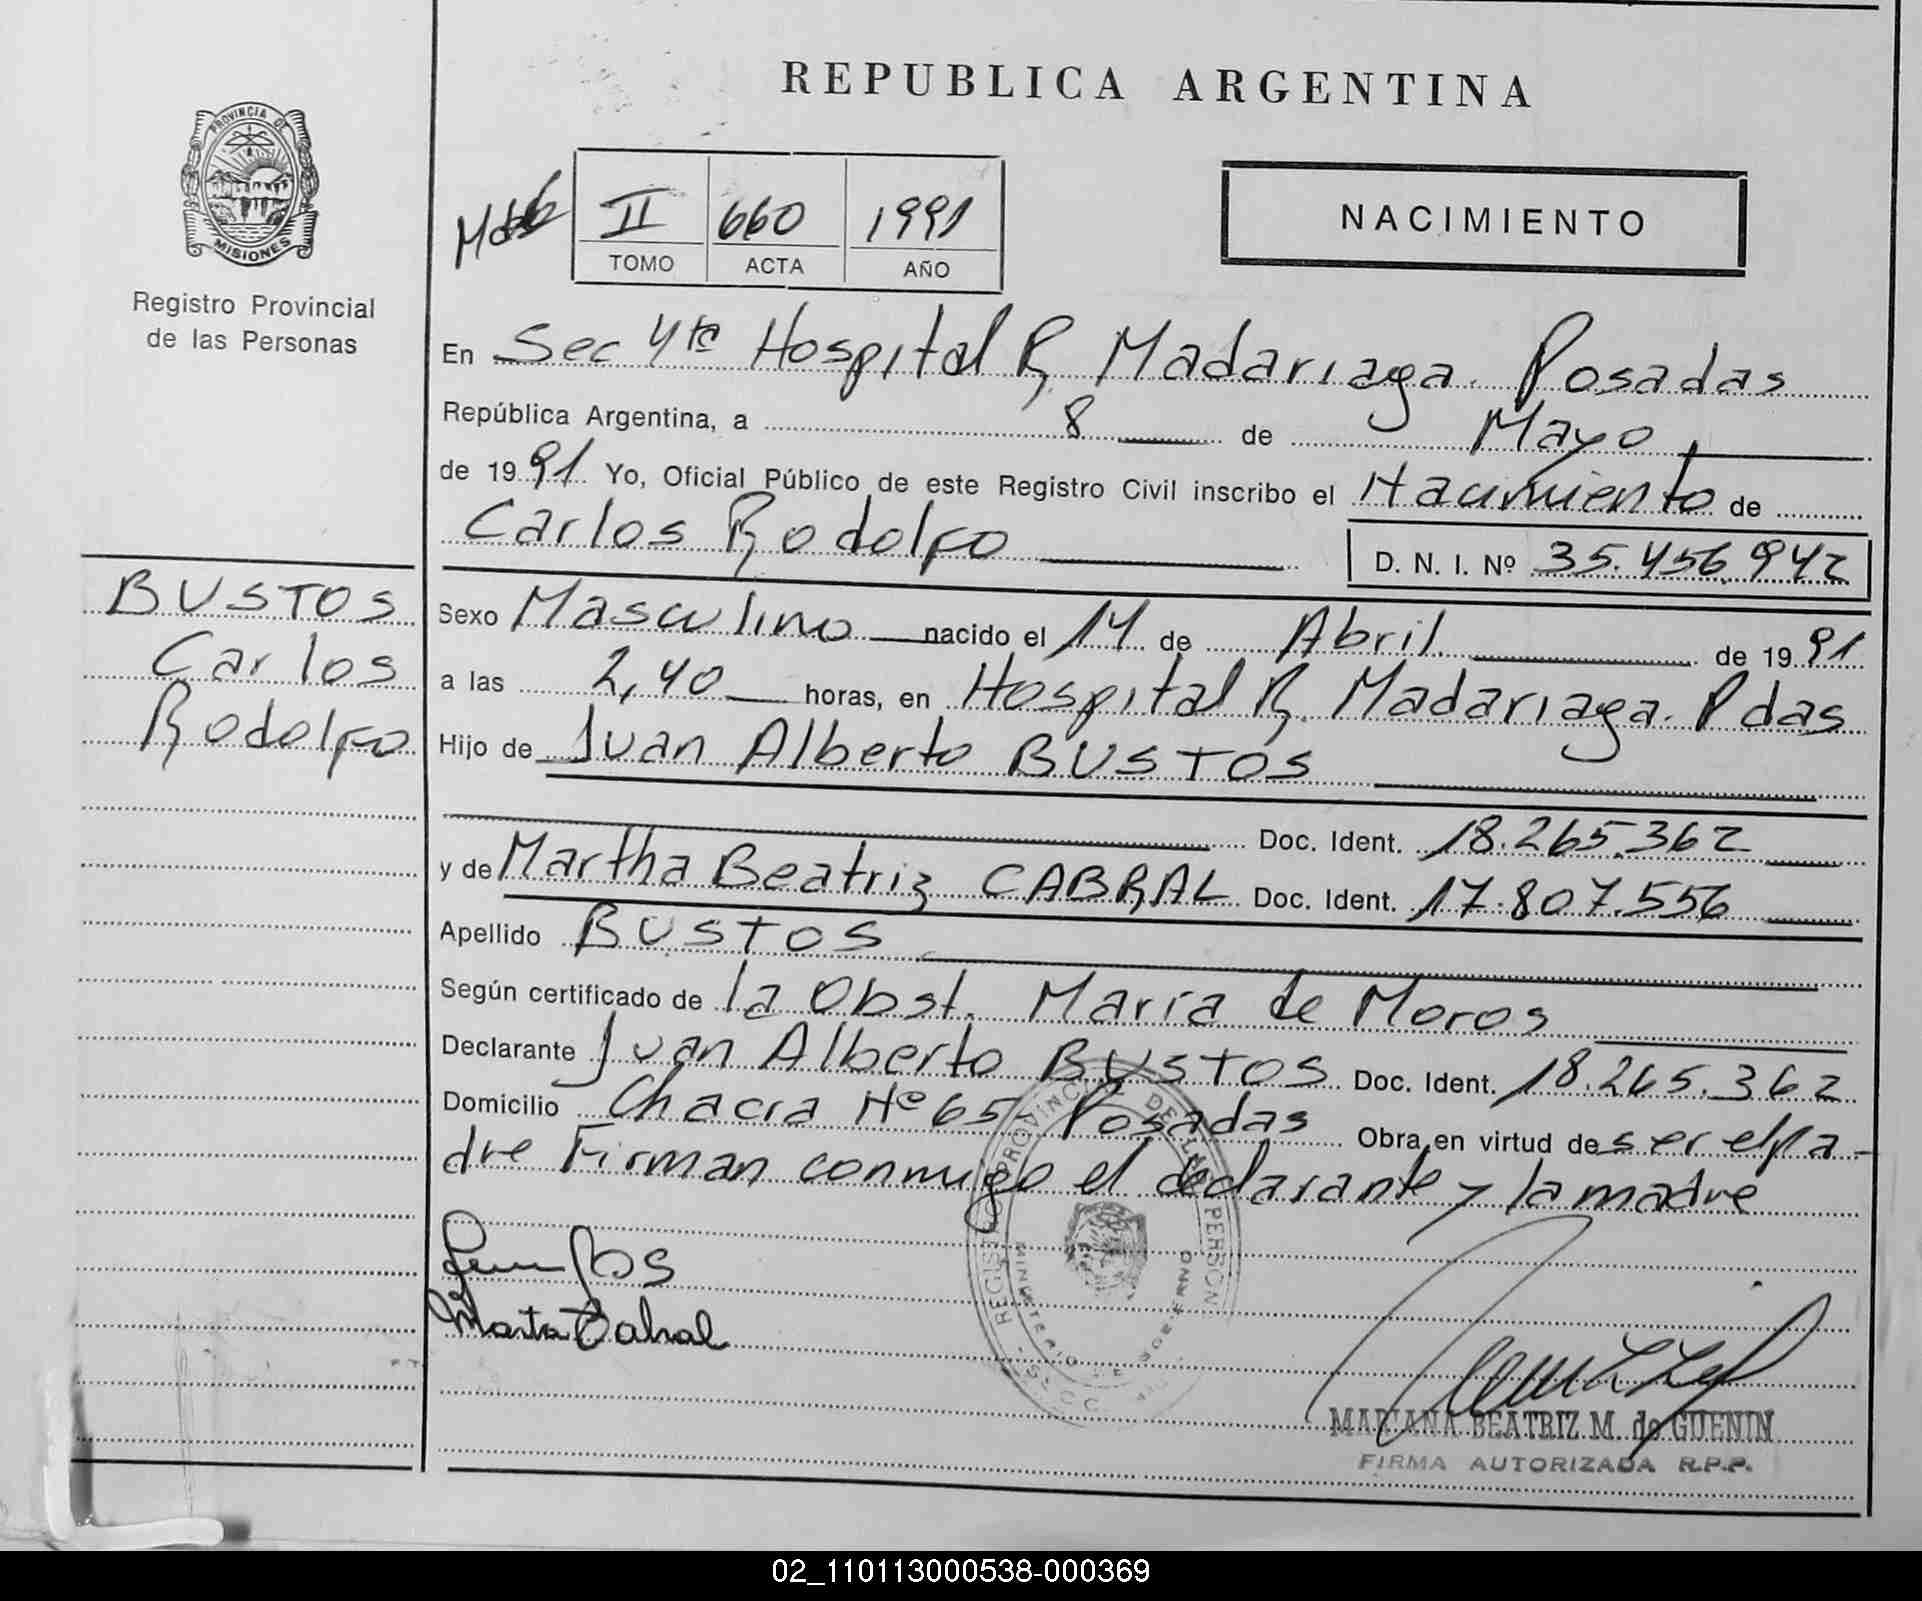 REPUBLICA ARGENTINA
PROVINCIA DE
MISIONES
Registro Provincial
de las Personas
II 660 1991
TOMO ACTA AÑO
NACIMIENTO
En Sec 4ta Hospital R. Madariaga. Posadas
República Argentina, a 8 de Mayo
de 1991 Yo, Oficial Público de este Registro Civil inscribo el Nacimiento de
Carlos Rodolfo
D. N. I. Nº 35.456.942
BUSTOS
Carlos
Rodolfo
Sexo Masculino nacido el 14 de Abril. de 1991
a las 2,40 horas, en Hospital R. Madariaga. Pdas
Hijo de Juan Alberto BUSTOS
Doc. Ident. 18.265.362
y de Martha Beatriz CABRAL Doc. Ident. 17.807.556
Apellido BUSTOS
Según certificado de la Obst. María de Moros
Declarante Juan Alberto BUSTOS Doc. Ident. 18.265.362
Domicilio Chacra Nº 65 Posadas Obra en virtud de ser el pa-
dre Firman conmigo el declarante y la madre
REGISTRO PROVINCIAL DE LAS PERSON
MINISTERIO DE GOBIERNO
Marta Cabral
MARIANA BEATRIZ M. de GUENIN
FIRMA AUTORIZADA R.P.P.
02_110113000538-000369